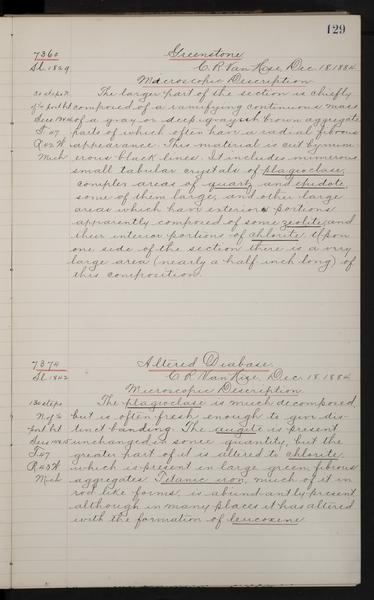 129
7360 Greenstone
Sl. 1829 C. R. Van Hise, Dec. 18, 1884.
Macroscopic Description
The larger part of the section is chiefly
composed of a ramifying continuous mass
of a gray or deep grayish brown aggregate
T 47 parts of which often have a radial fibrous
R 42 W. appearance. This material is cut by num-
Mich erous black lines. It includes numerous
small tabular crystals of plagioclase,
complex areas of quartz and epidote,
some of them large, and other large
areas which have exterior portions
apparently composed of some zeolite, and
their interior portions of chlorite. Upon
one side of the section there is a very
large area (nearly a half inch long) of
this composition.
7374 Altered Diabase.
Sl. 1842 C. R. Van Hise, Dec. 18, 1884.
Microscopic Description
130 steps The plagioclase is much decomposed
but is often fresh enough to give dis-
tinct banding. The augite is present
unchanged in some quantity, but the
T 47 greater part of it is altered to chlorite,
R 43 W. which is present in large green, fibrous
Mich aggregates. Titanic iron, much of it in
rod like forms, is abundantly present
although in many places it has altered
with the formation of leucoxene.